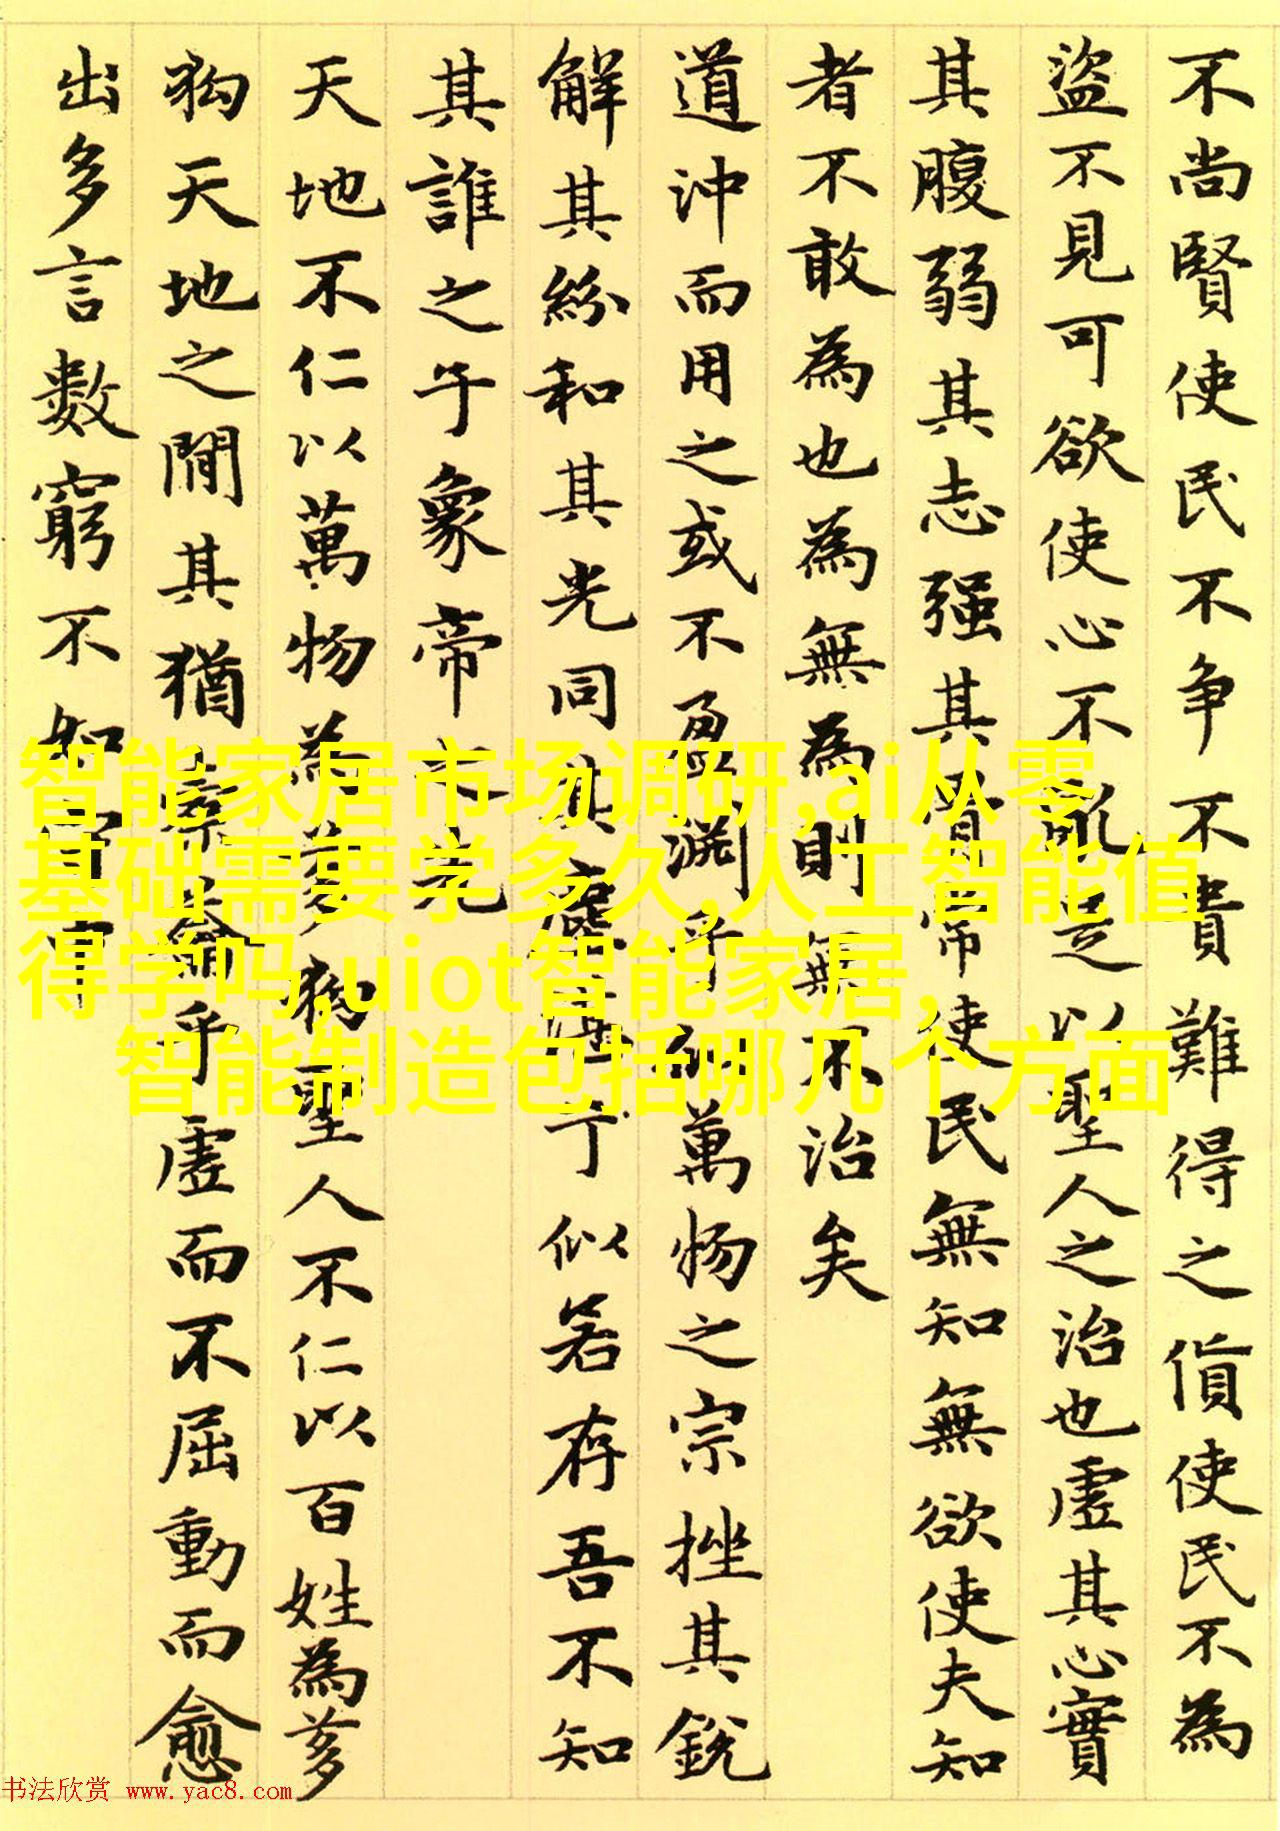 不尚賢使民不争不貴難得之貨使民不為
盜不見可欲使心不亂是以聖人之治也虛其心實
其腹弱其志强其骨常使民無知無欲使夫知
者不敢為也為無為則無不治矣
道沖而用之或不盈淵乎似萬物之宗挫其銳
解其紛和其光同其塵湛兮似若存吾不知
其誰之子象帝之先
天地不仁以萬物為芻狗聖人不仁以百姓為芻
狗天地之間其猶橐籥乎虛而不屈動而愈
出多言數窮不如守中
智能家居市场调研,ai从零
基础需要学多久,人工智能值
得学吗,uiot智能家居,
智能制造包括哪几个方面
书法欣赏 www.yac8.com